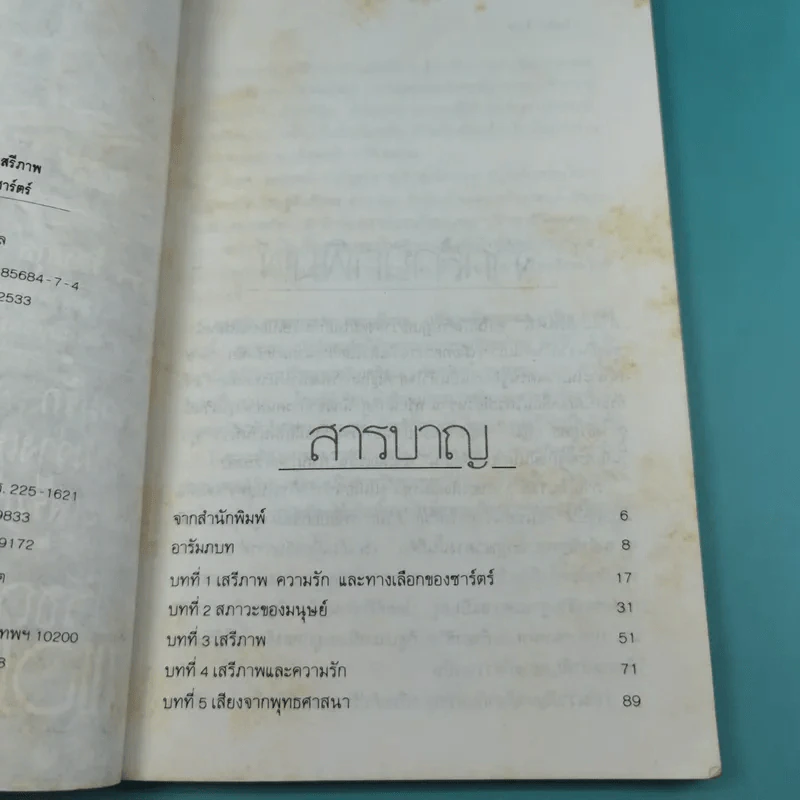 เสรีภาพ
ซาร์ตร์
ล
85684-7-4
2533
ร. 225-1621
9833
9172
ต
เทพฯ 10200
8
สารบาญ
จากสำนักพิมพ์ 6
อารัมภบท 8
บทที่ 1 เสรีภาพ ความรัก และทางเลือกของซาร์ตร์ 17
บทที่ 2 สภาวะของมนุษย์ 31
บทที่ 3 เสรีภาพ 51
บทที่ 4 เสรีภาพและความรัก 71
บทที่ 5 เสียงจากพุทธศาสนา 89